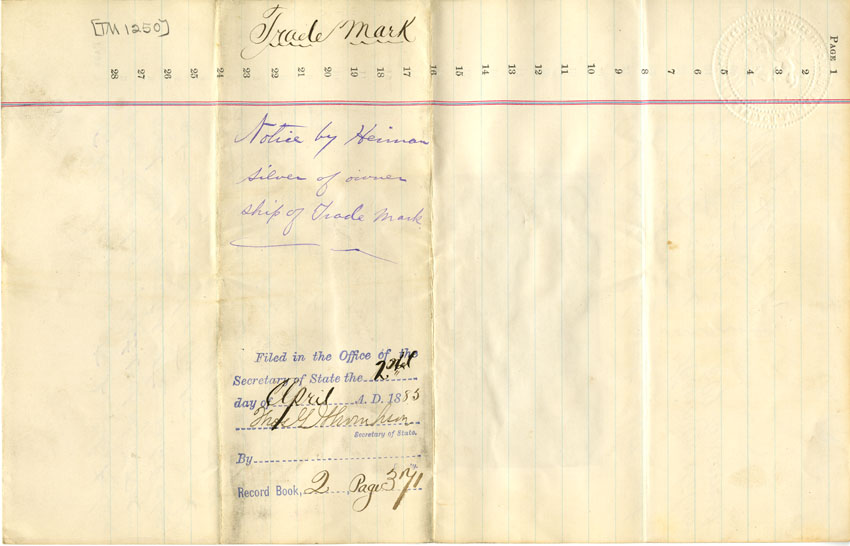 [TM 1250]
Trade Mark
PAGE 1
28 27 26 25 24 23 22 21 20 19 18 17 16 15 14 13 12 11 10 9 8 7 6 5 4 3 2
Notice by Heiman
silver of owner
ship of Trade Mark
Filed in the Office of the
Secretary of State the 2nd
day of April A. D. 1885
Thos L Thompson
Secretary of State.
By
Record Book, 2, Page 371